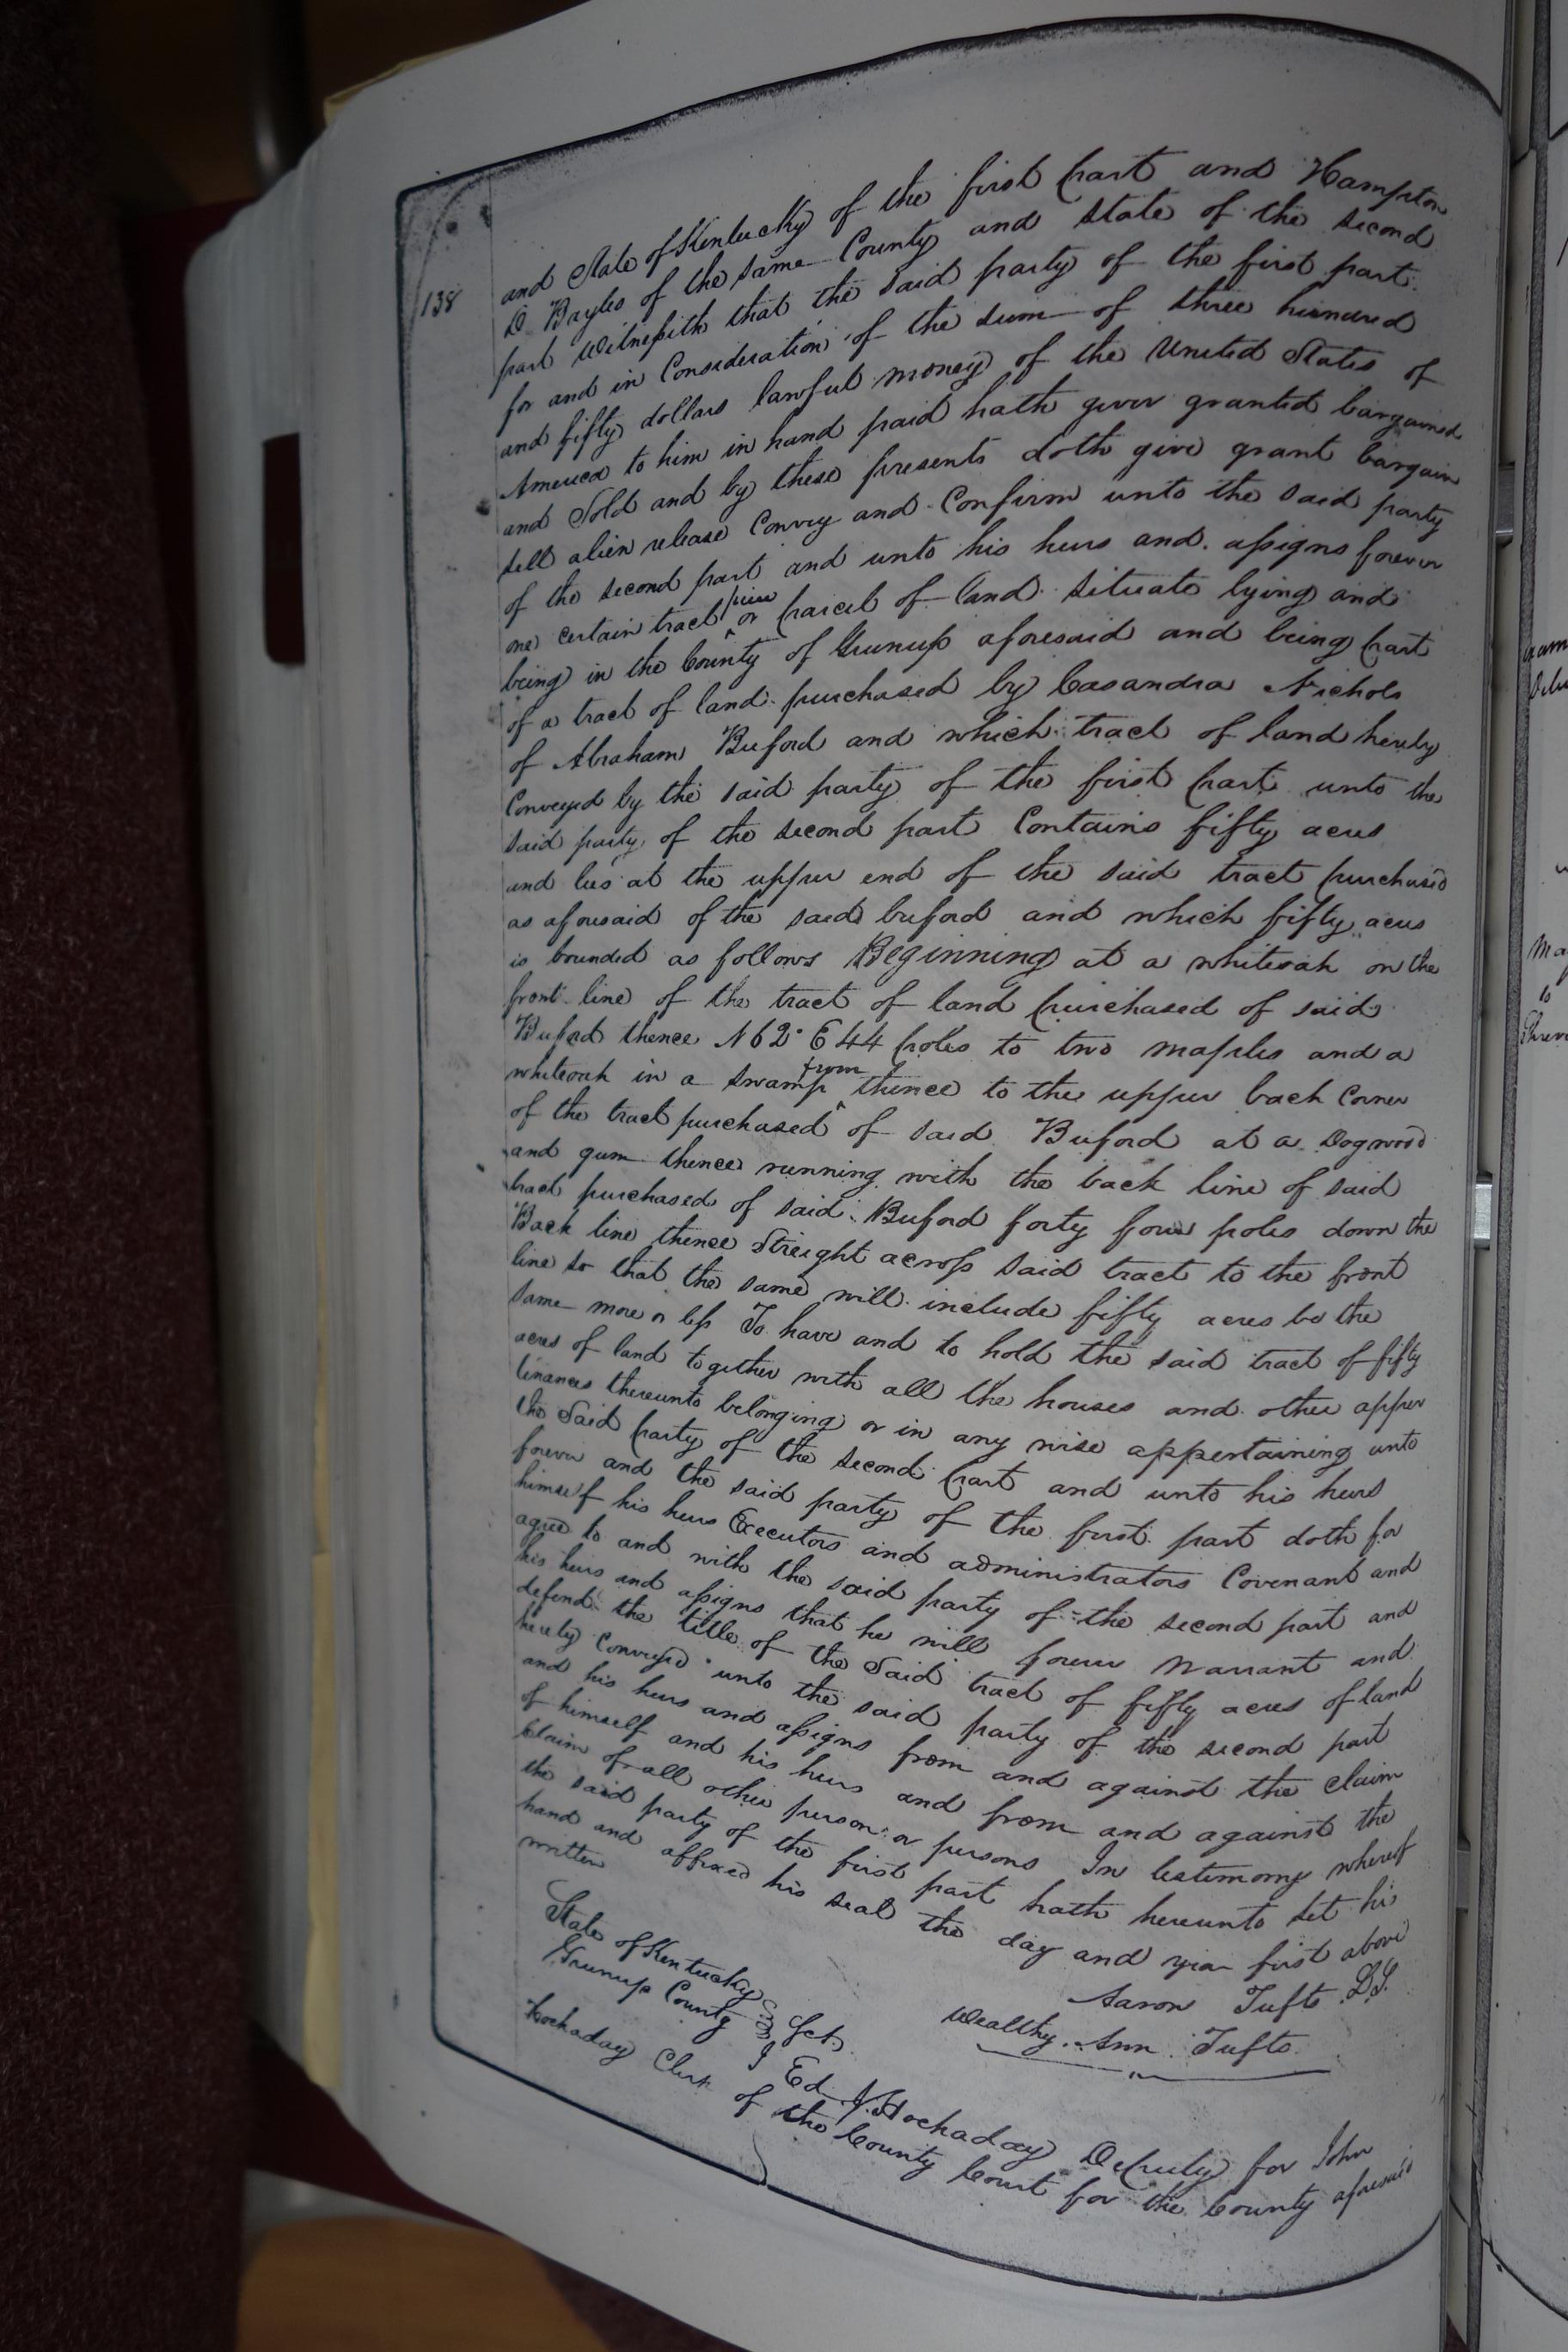 138
and State of Kentucky of the first part and Hampton
D Bayles of the same County and State of the second
part Witnesseth that the said party of the first part.
for and in Consideration of the sum of three hundred
and fifty dollars lawful money of the United States of
America to him in hand paid hath given granted bargained
and Sold and by these presents doth give grant bargain
sell alien release Convey and Confirm unto the said party
of the second part and unto his heirs and assigns forever
one certain tract piece or parcel of land situate lying and
being in the County of Greenup aforesaid and being part
of a tract of land purchased by Casandra Nichols
of Abraham Buford and which tract of land hereby
Conveyed by the said party of the first part unto the
said party of the second part Contains fifty acres
and lies at the upper end of the said tract purchased
as aforesaid of the said buford and which fifty acres
is bounded as follows Beginning at a whiteoak on the
front line of the tract of land purchased of said
Buford thence N 62° E 44 poles to two maples and a
whiteoak in a swamp from thence to the upper back Corner
of the tract purchased of said Buford at a Dogwood
and gum thence running with the back line of said
tract purchased of said Buford forty four poles down the
Back line thence Streight across said tract to the front
line so that the same will include fifty acres be the
same more or less To have and to hold the said tract of fifty
acres of land together with all the houses and other apper
tinances thereunto belonging or in any wise appertaining unto
the Said party of the second part and unto his heirs
forever and the said party of the first part doth for
himself his heirs Executors and administrators Covenant and
agree to and with the said party of the second part and
his heirs and assigns that he will forever Warrant and
defend the title of the Said tract of fifty acres of land
hereby conveyed unto the said party of the second part
and his heirs and assigns from and against the claim
of himself and his heirs and from and against the
Claim of all other person or persons In testimony whereof
the said party of the first part hath hereunto set his
hand and affixed his seal the day and year first above
written
Aaron Tufts
Wealthy Ann Tufts
State of Kentucky
Greenup County Sct
I Ed. Hockaday Deputy for John
Hockaday Clerk of the County Court for the County aforesaid